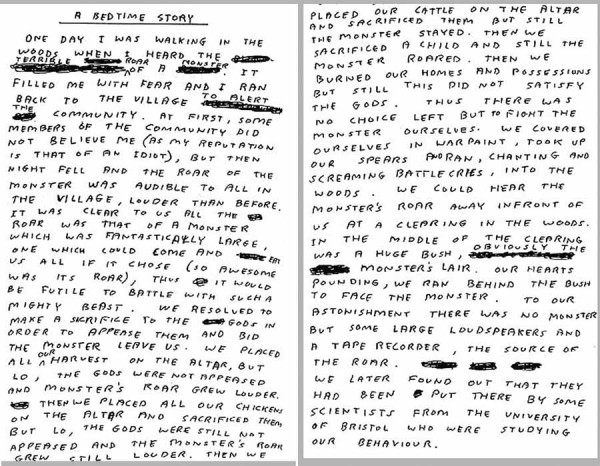 A BEDTIME STORY
ONE DAY I WAS WALKING IN THE
WOODS WHEN I HEARD THE
TERRIBLE ROAR OF A MONSTER. IT
FILLED ME WITH FEAR AND I RAN
BACK TO THE VILLAGE TO ALERT
THE COMMUNITY. AT FIRST, SOME
MEMBERS OF THE COMMUNITY DID
NOT BELIEVE ME (AS MY REPUTATION
IS THAT OF AN IDIOT), BUT THEN
NIGHT FELL AND THE ROAR OF THE
MONSTER WAS AUDIBLE TO ALL IN
THE VILLAGE, LOUDER THAN BEFORE.
IT WAS CLEAR TO US ALL THE
ROAR WAS THAT OF A MONSTER
WHICH WAS FANTASTICALLY LARGE,
ONE WHICH COULD COME AND EAT
US ALL IF IT CHOSE (SO AWESOME
WAS ITS ROAR), THUS IT WOULD
BE FUTILE TO BATTLE WITH SUCH A
MIGHTY BEAST. WE RESOLVED TO
MAKE A SACRIFICE TO THE GODS IN
ORDER TO APPEASE THEM AND BID
THE MONSTER LEAVE US. WE PLACED
ALL OUR HARVEST ON THE ALTAR, BUT
LO, THE GODS WERE NOT APPEASED
AND MONSTER'S ROAR GREW LOUDER.
THEN WE PLACED ALL OUR CHICKENS
ON THE ALTAR AND SACRIFICED THEM
BUT LO, THE GODS WERE STILL NOT
APPEASED AND THE MONSTER'S ROAR
GREW STILL LOUDER. THEN WE
PLACED OUR CATTLE ON THE ALTAR
AND SACRIFICED THEM BUT STILL
THE MONSTER STAYED. THEN WE
SACRIFICED A CHILD AND STILL THE
MONSTER ROARED. THEN WE
BURNED OUR HOMES AND POSSESSIONS
BUT STILL THIS DID NOT SATISFY
THE GODS. THUS THERE WAS
NO CHOICE LEFT BUT TO FIGHT THE
MONSTER OURSELVES. WE COVERED
OURSELVES IN WARPAINT, TOOK UP
OUR SPEARS AND RAN, CHANTING AND
SCREAMING BATTLECRIES, INTO THE
WOODS. WE COULD HEAR THE
MONSTER'S ROAR AWAY INFRONT OF
US AT A CLEARING IN THE WOODS.
IN THE MIDDLE OF THE CLEARING
WAS A HUGE BUSH, OBVIOUSLY THE
MONSTER'S LAIR. OUR HEARTS
POUNDING, WE RAN BEHIND THE BUSH
TO FACE THE MONSTER. TO OUR
ASTONISHMENT THERE WAS NO MONSTER
BUT SOME LARGE LOUDSPEAKERS AND
A TAPE RECORDER, THE SOURCE OF
THE ROAR.
WE LATER FOUND OUT THAT THEY
HAD BEEN PUT THERE BY SOME
SCIENTISTS FROM THE UNIVERSITY
OF BRISTOL WHO WERE STUDYING
OUR BEHAVIOUR.